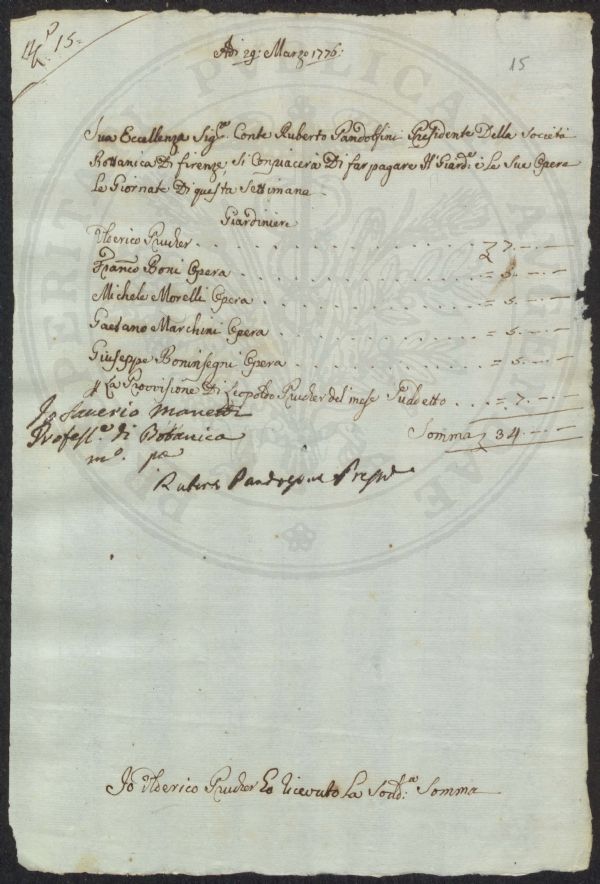 N.° 15.
15
Adì 29: Marzo 1776:
Sua Eccellenza Sig.re Conte Ruberto Pandolfini Presidente Della Società
Bottanica Di firenze, Si Conpiacera Di far pagare Al Giard.e e le Sue Opere
Le Giornate Di questa Settimana
Giardiniere
Ulderico Prucher . . . 7. -. -
Franco Boni Opera . . . = 5. -. -
Michele Morelli Opera . . . = 5. -. -
Gaetano Marchini Opera . . . = 5. -. -
Giuseppe Boninsegni Opera . . . = 5. -. -
La Provvisione Di Leopoldo Prucher del mese Suddetto . . = 7. -. -
Somma 34. -. -
Io Saverio Manetti
Profess.e di Botanica
m.o pa
Ruberto Pandolfini Presid.e
Io Ulderico Prucher Ho ricevuto La Sodd.a Somma
PERITIA PVBLICA AVGENDAE